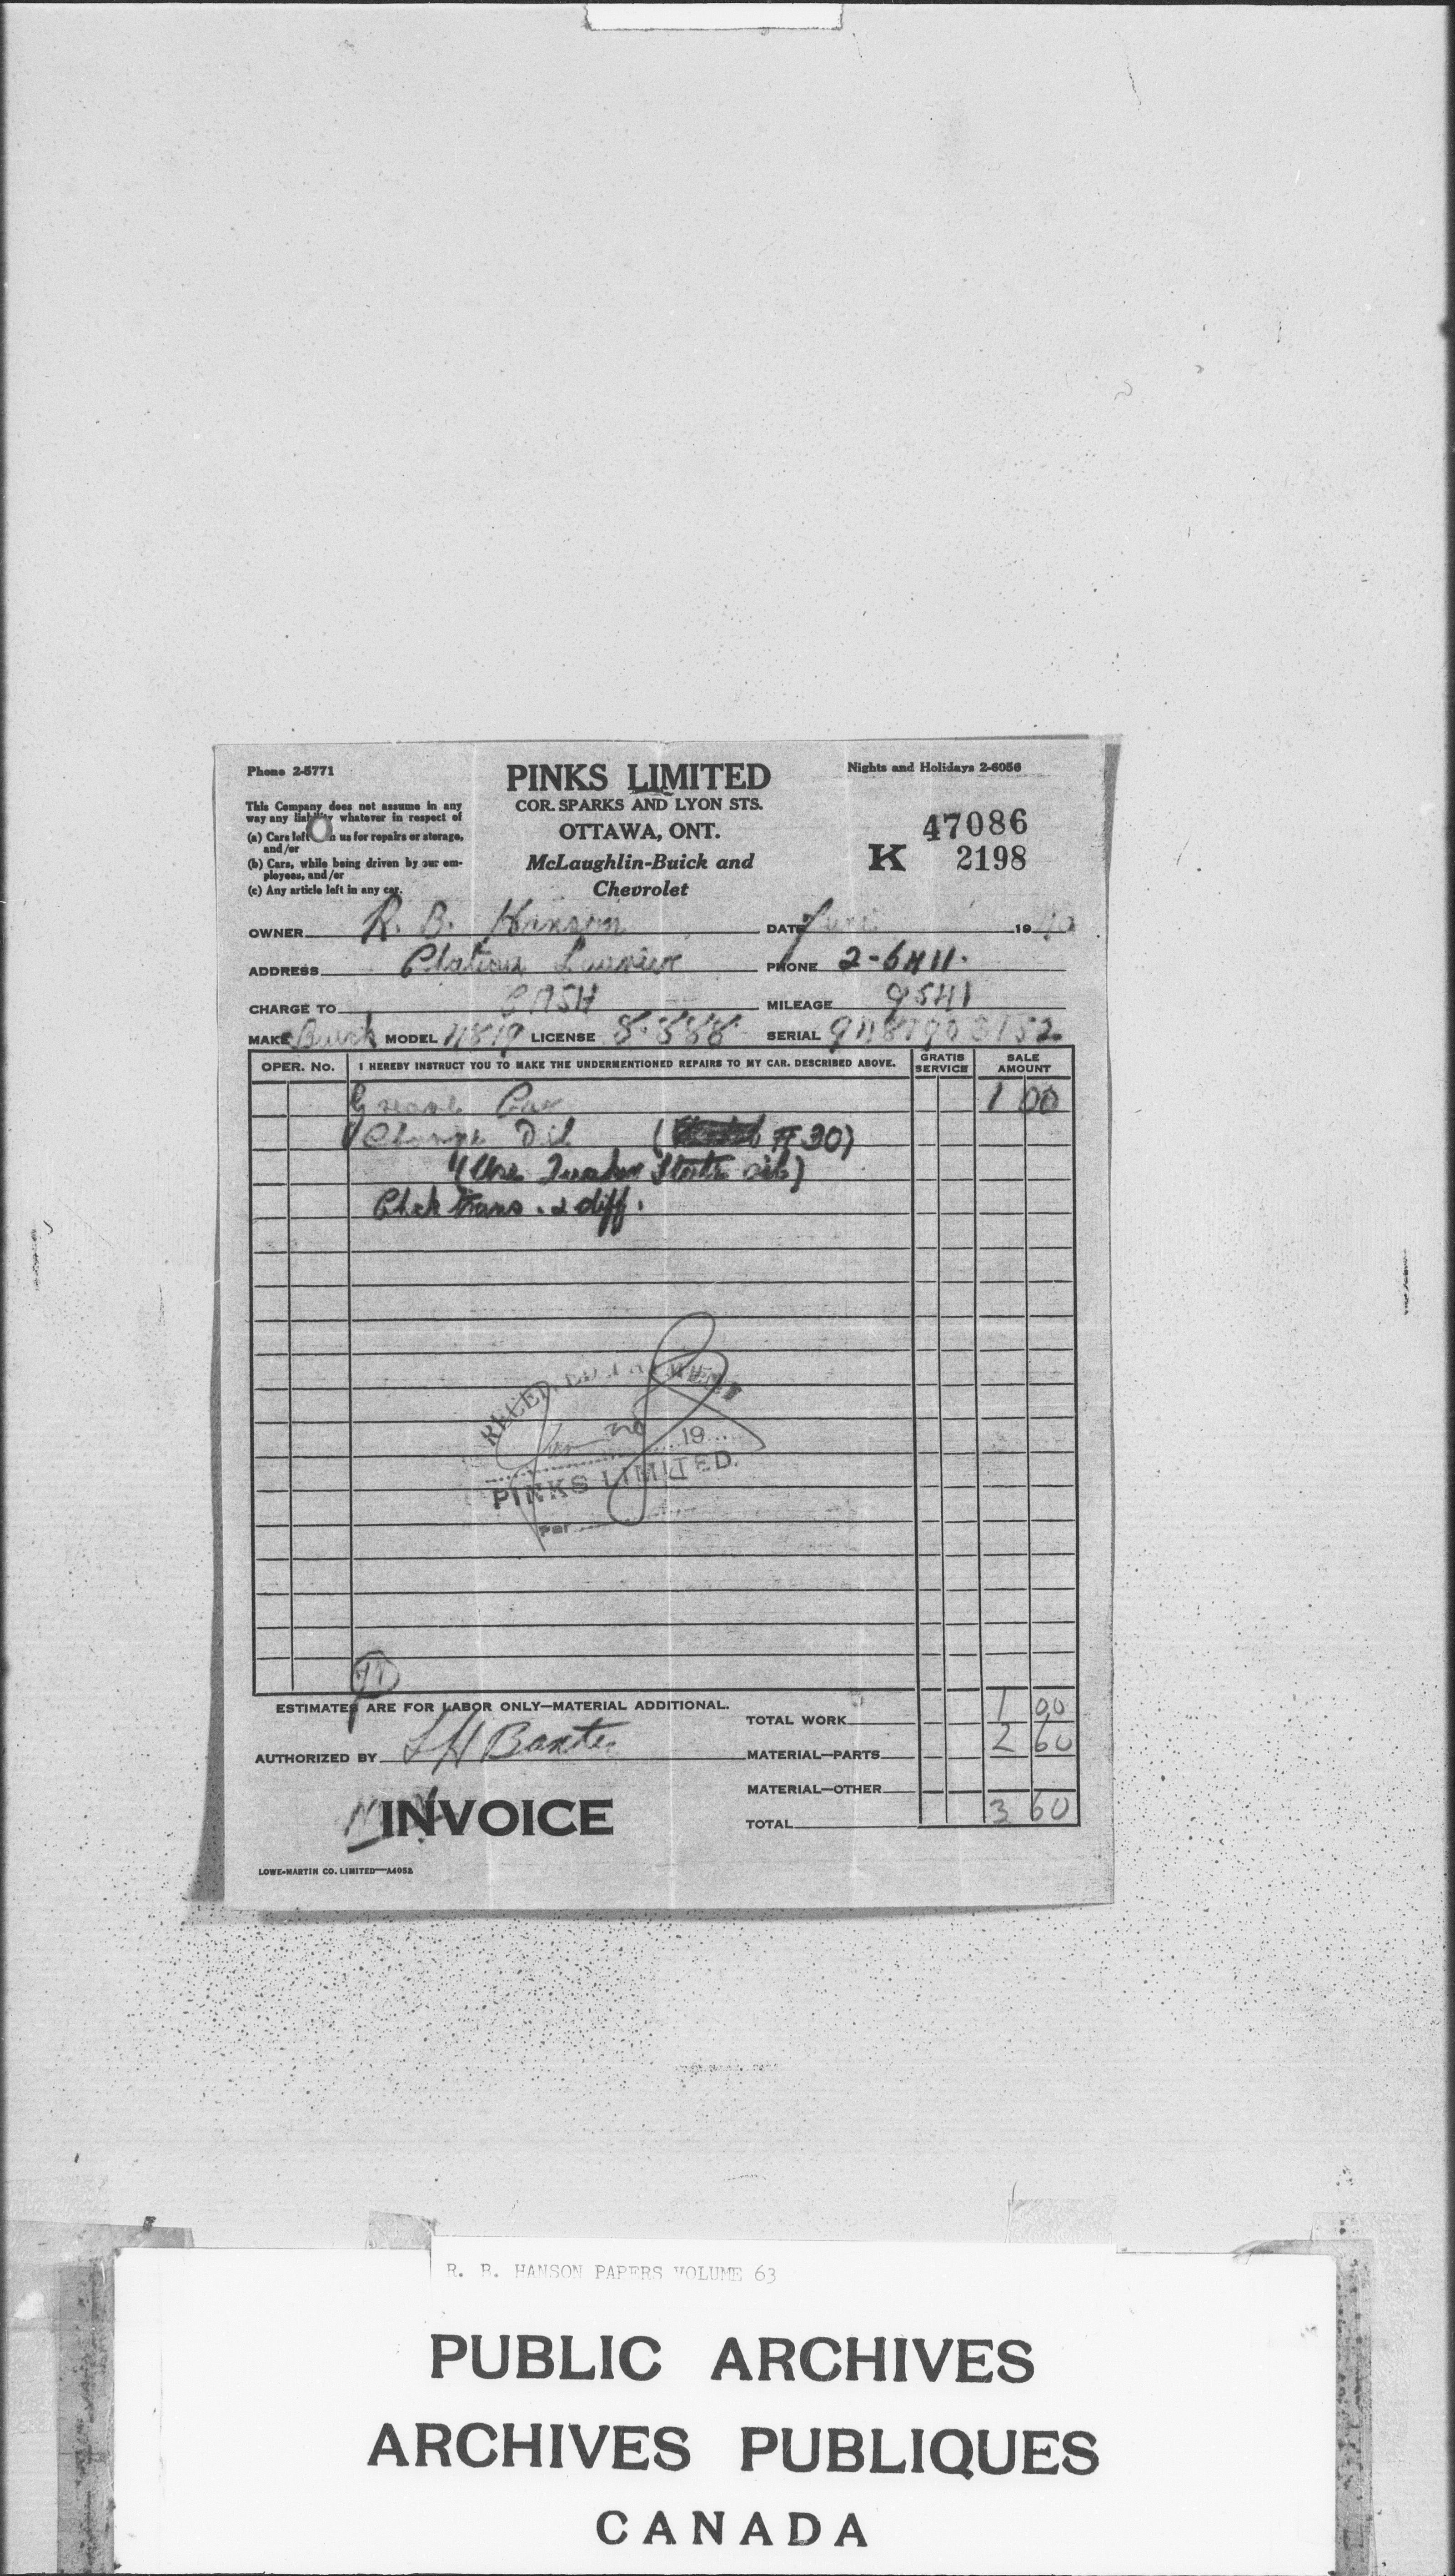 Phone 2-5771
PINKS LIMITED
Nights and Holidays 2-6056
COR. SPARKS AND LYON STS.
OTTAWA, ONT.
McLaughlin-Buick and
Chevrolet
This Company does not assume in any
way any liability whatever in respect of
(a) Cars left us for repairs or storage,
and/or
(b) Cars, while being driven by our em-
ployees, and/or
(c) Any article left in any car.
47086
K 2198
OWNER R. B. Hanson DATE June 1940
ADDRESS Chateau Laurier PHONE 2-6411.
CHARGE TO CASH MILEAGE 9541
MAKE Buick MODEL LICENSE 8-888 SERIAL
OPER. No. I HEREBY INSTRUCT YOU TO MAKE THE UNDERMENTIONED REPAIRS TO MY CAR. DESCRIBED ABOVE. GRATIS SERVICE SALE AMOUNT
Grease Car 1 00
Change Oil ( # 30)
(Use Quaker State oil)
Chek trans. & diff.
RECEIVED PAYMENT
19
PINKS LIMITED.
Per
ESTIMATES ARE FOR LABOR ONLY—MATERIAL ADDITIONAL.
TOTAL WORK 1 00
AUTHORIZED BY L H Baxter MATERIAL—PARTS 2 60
MATERIAL—OTHER
INVOICE
TOTAL 3 60
LOWE-MARTIN CO. LIMITED—A4052
R. B. HANSON PAPERS VOLUME 63
PUBLIC ARCHIVES
ARCHIVES PUBLIQUES
CANADA